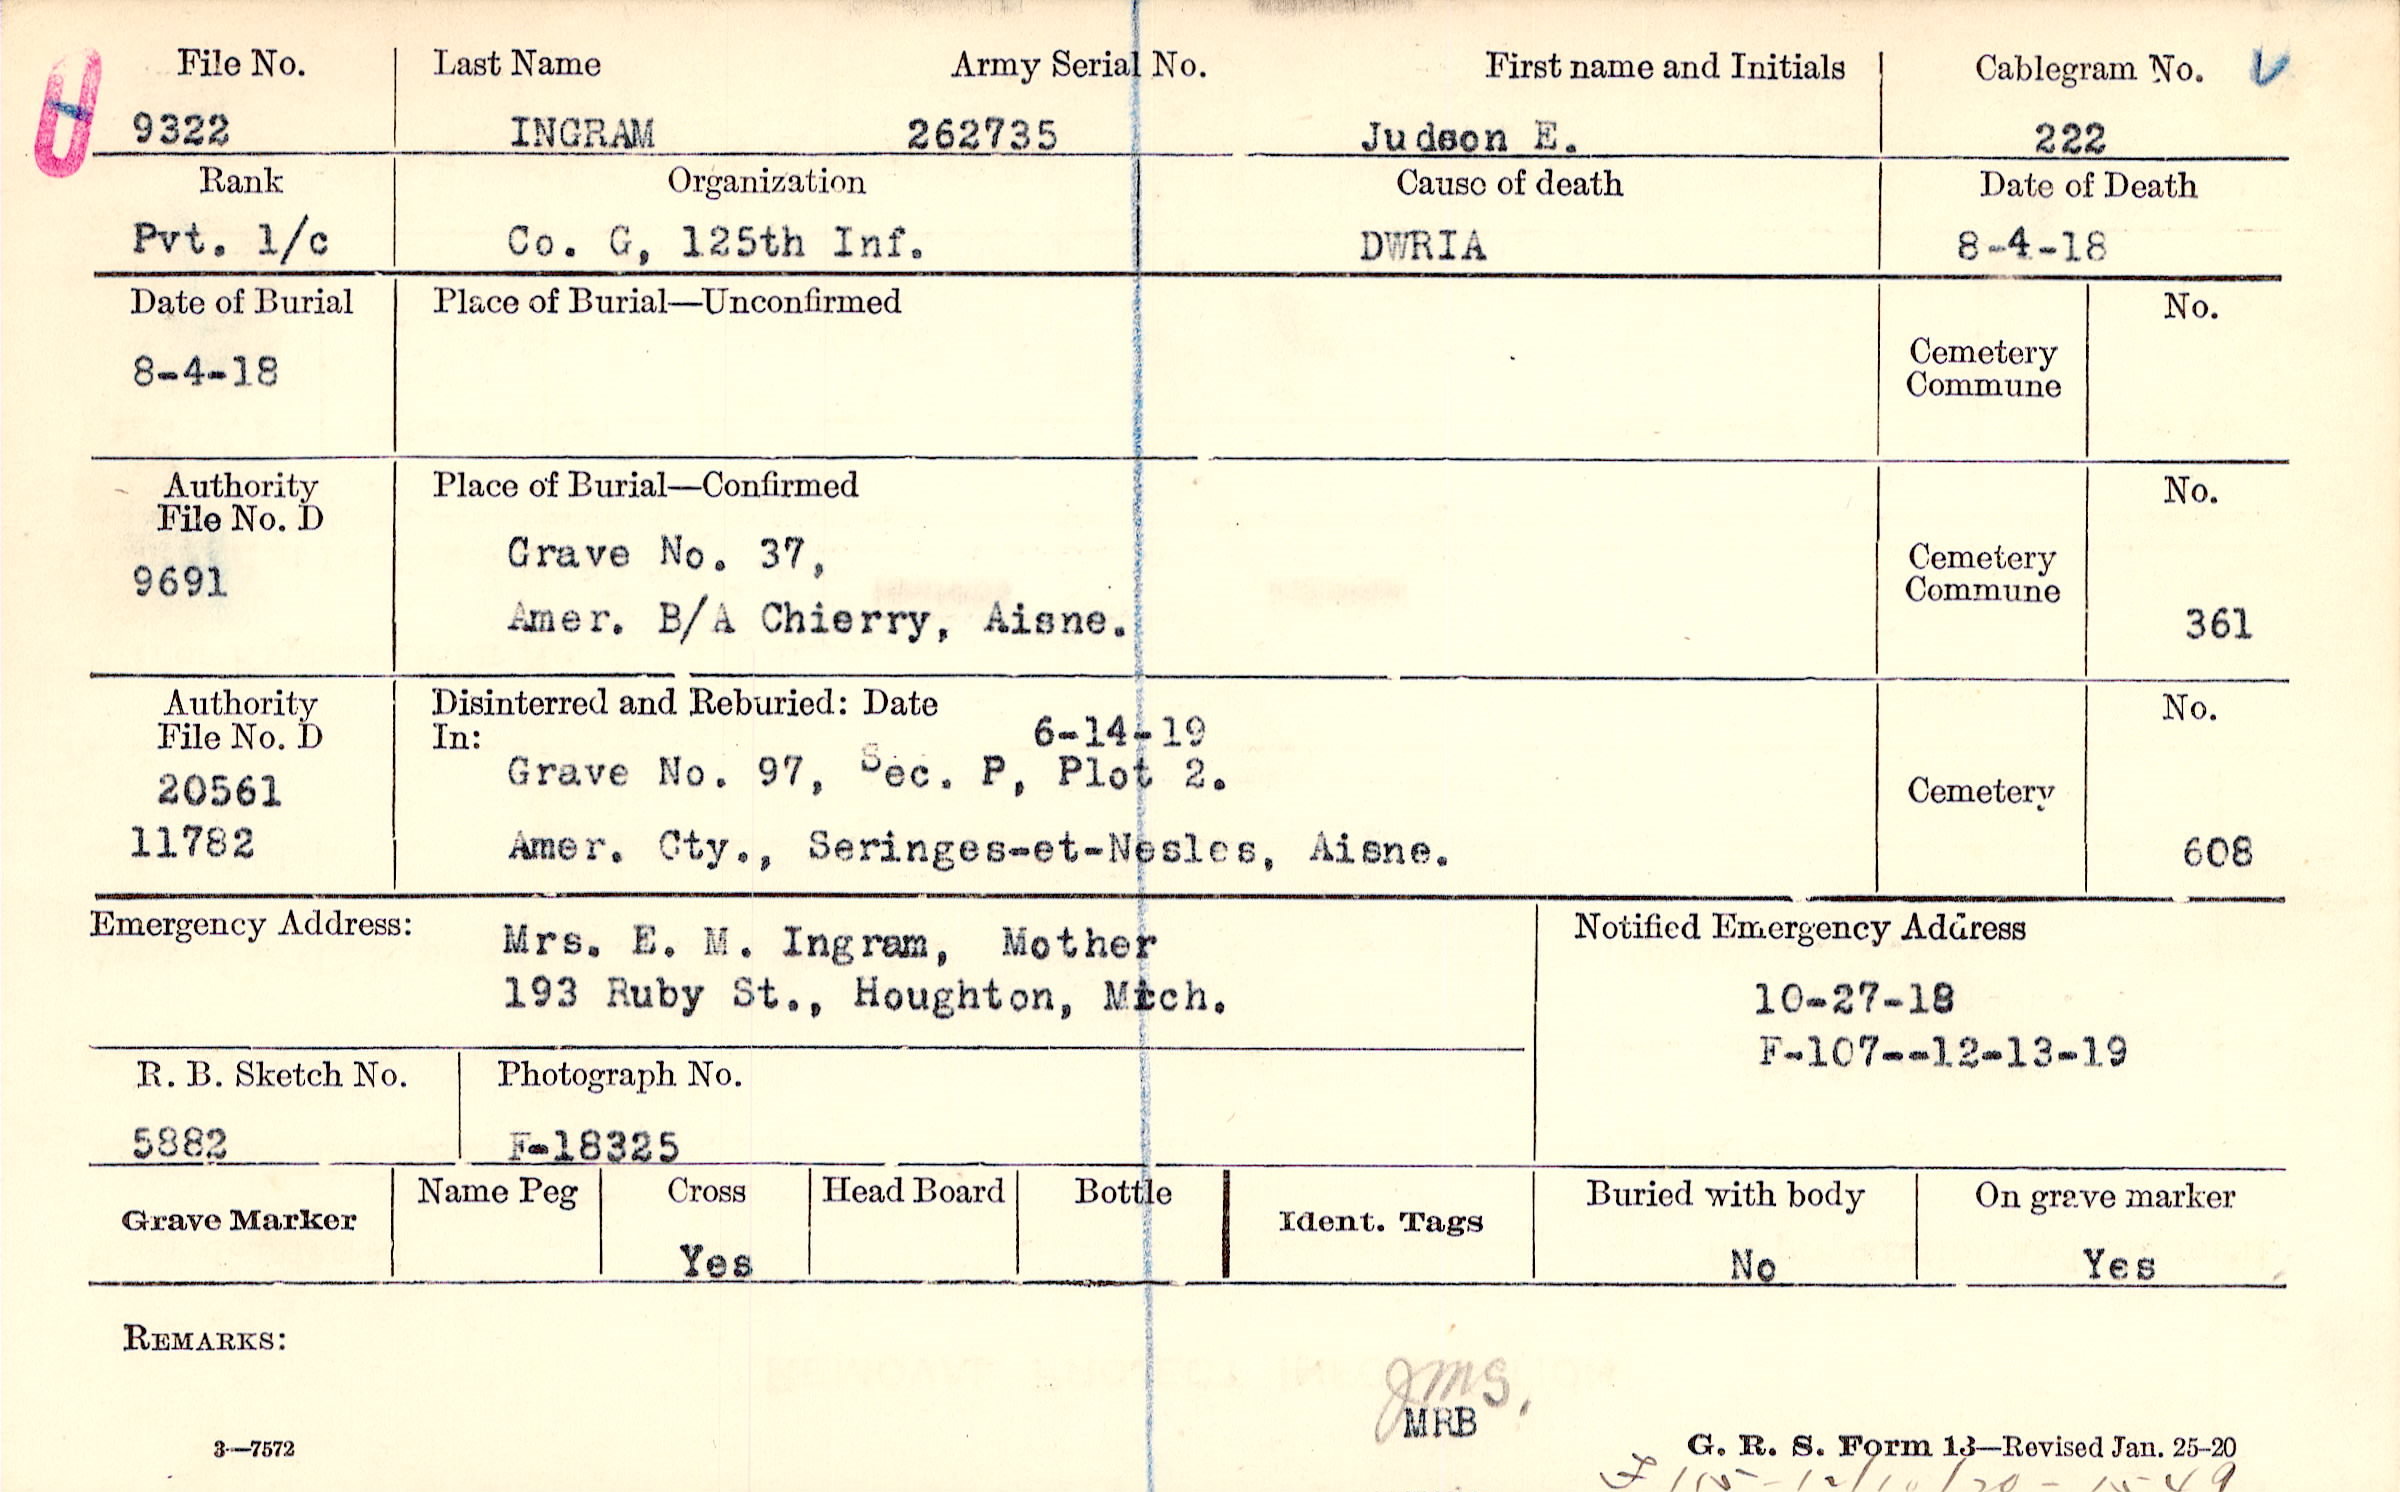 File No. Last Name Army Serial No. First name and Initials Cablegram No.
9322 INGRAM 262735 Judson E. 222
Rank Organization Cause of death Date of Death
Pvt. 1/c Co. G, 125th Inf. DWRIA 8-4-18
Date of Burial Place of Burial—Unconfirmed No.
8-4-18
Cemetery
Commune
Authority Place of Burial—Confirmed No.
File No. D
9691
Grave No. 37,
Amer. B/A Chierry, Aisne.
Cemetery
Commune
361
Authority Disinterred and Reburied: Date 6-14-19 No.
File No. D In:
20561 Grave No. 97, Sec. P, Plot 2. Cemetery
11782 Amer. Cty., Seringes-et-Nesles, Aisne. 608
Emergency Address: Mrs. E. M. Ingram, Mother
193 Ruby St., Houghton, Mich.
Notified Emergency Address
10-27-18
F-107--12-13-19
R. B. Sketch No. Photograph No.
5882 F-18325
Grave Marker Name Peg Cross Head Board Bottle Ident. Tags Buried with body On grave marker
Yes No Yes
REMARKS:
JMS.
MRB
3—7572 G. R. S. Form 13—Revised Jan. 25-20